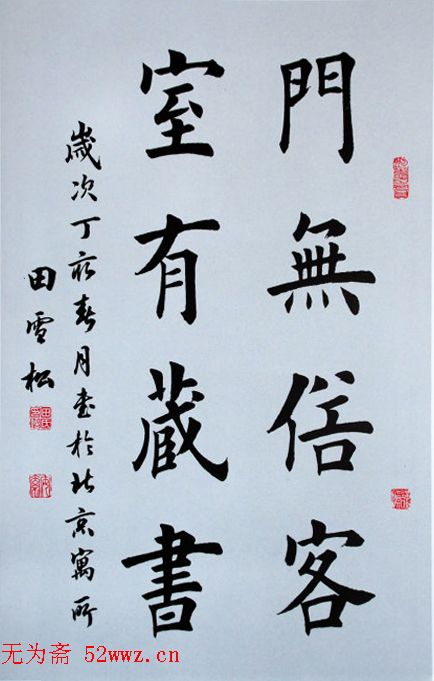 門無俗客
室有蔵書
歲次丁亥春月書於北京寓所
田雪松
无为斋 52wwz.cn